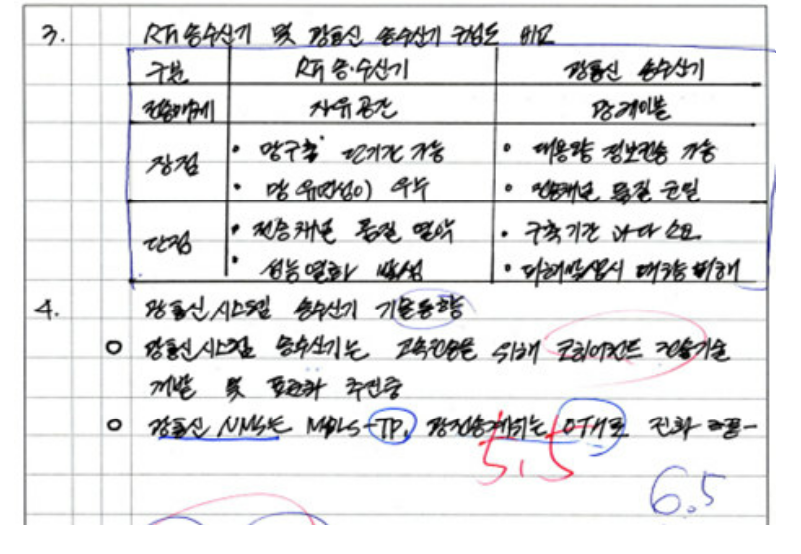 3. RF송수신기 및 광통신 송수신기 구성도 비교
구분 RF 송·수신기 광통신 송수신기
전송매체 자유공간 광케이블
장점 • 망구축 단기간 가능 • 대용량 정보전송 가능
• 망 유연성이 우수 • 전송채널 품질 균일
단점 • 전송채널 품질 열악 • 구축기간 과다 소요
• 성능열화 발생 • 피해발생시 대량 피해
4. 광통신시스템 송수신기 기술동향
o 광통신시스템 송수신기는 고속전송을 위해 코히어런트 전송기술
개발 및 표준화 추진중
o 광통신 NMS는 MPLS-TP, 광전송계위는 OTH로 진화
5.5
6.5